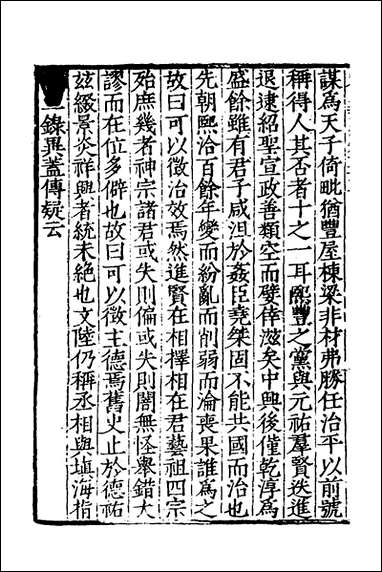 謀爲天子倚毗猶豐屋棟梁非材弗勝任治平以前號
稱得人其否者十之一耳熙豐之黨與元祐羣賢迭進
退逮紹聖宣政善類空而嬖倖滋矣中興後僅乾淳爲
盛餘雖有君子咸沮於姦臣堯桀固不能共國而治也
先朝熙洽百餘年變而紛亂而削弱而淪喪果誰爲之
故曰可以徵治效焉然進賢在相擇相在君藝祖四宗
始庶幾者神宗諸君或失則偏或失則闇無怪舉錯大
謬而在位多僻也故曰可以徵主德焉舊史止於德祐
茲綴景炎祥興者統未絶也文陸仍稱丞相與塡海指
一錄異蓋傳疑云